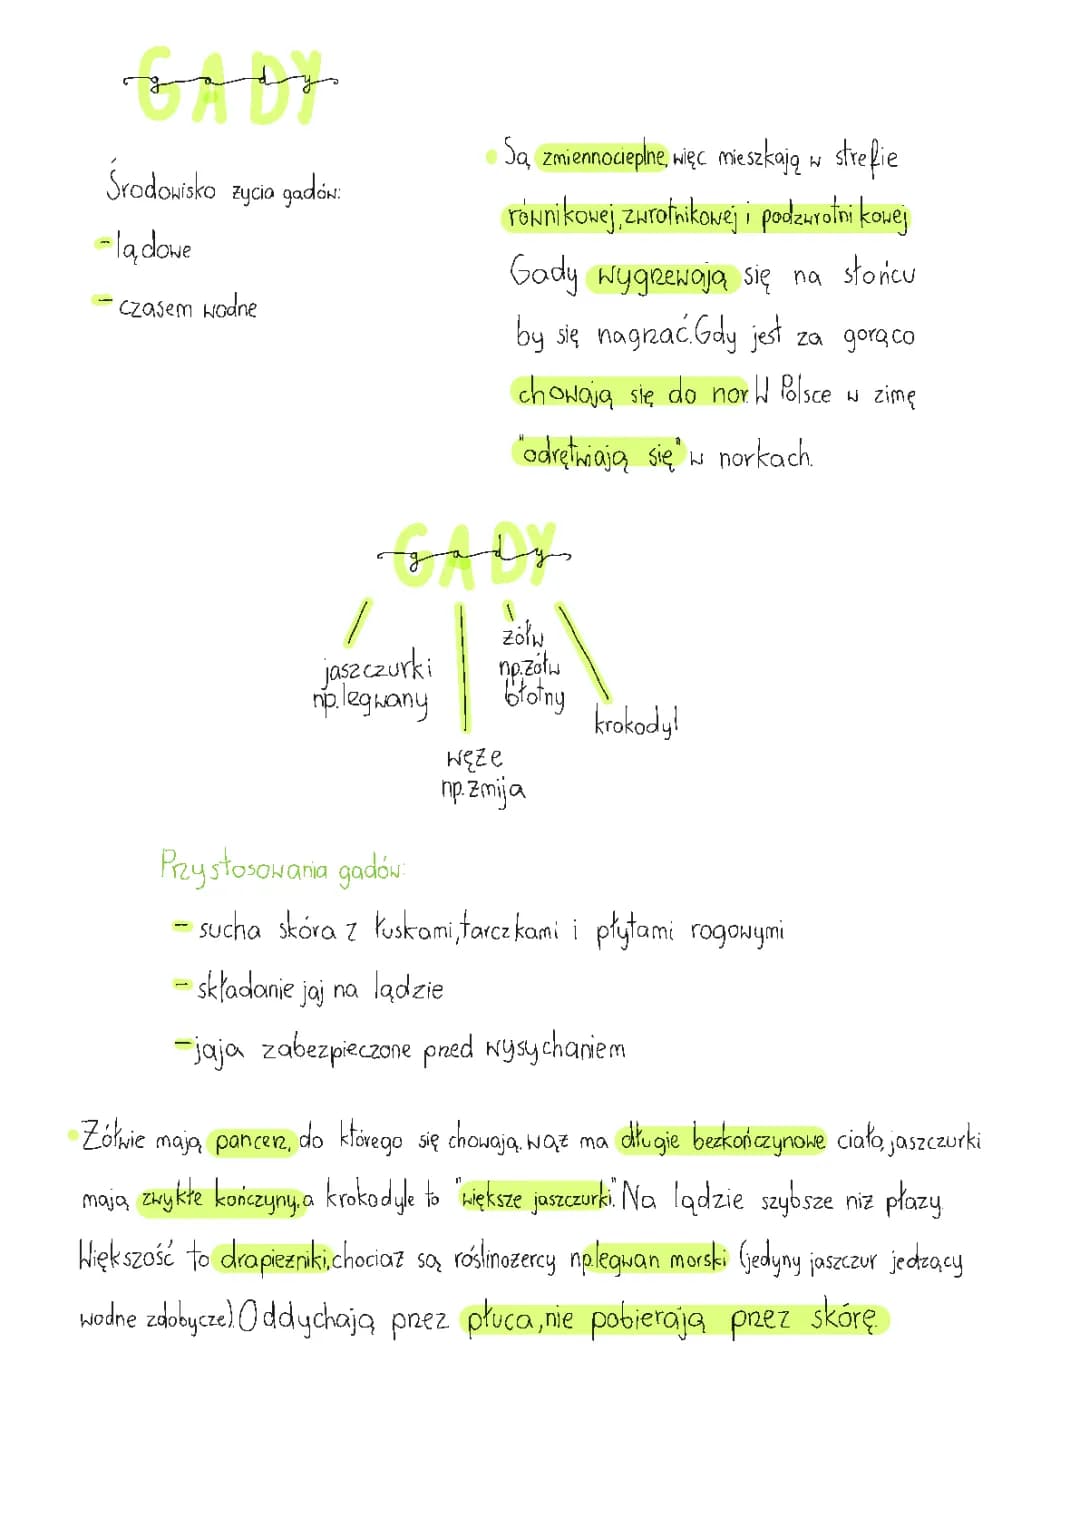 GADY
gady
Środowisko życia gadów:
- lądowe
- czasem wodne
• Są zmiennocieplne, więc mieszkają w strefie
równikowej, zwrotnikowej i podzwrotnikowej
Gady wygrzewają się na słońcu
by się nagrzać. Gdy jest za gorąco
chowają się do nor. W Polsce w zimę
"odrętwiają się" w norkach.
GADY
gady
jaszczurki
np. legwany
węże
np. żmija
żółw
np. żółw
błotny
krokodyl
Przystosowania gadów:
- sucha skóra z łuskami, tarczkami i płytami rogowymi
- składanie jaj na lądzie
- jaja zabezpieczone przed wysychaniem
• Żółwie mają pancerz, do którego się chowają, wąż ma długie bezkończynowe ciało, jaszczurki
mają zwykłe kończyny, a krokodyle to "większe jaszczurki". Na lądzie szybsze niż płazy.
Większość to drapieżniki, chociaż są roślinożercy np. legwan morski (jedyny jaszczur jedzący
wodne zdobycze). Oddychają przez płuca, nie pobierają przez skórę.